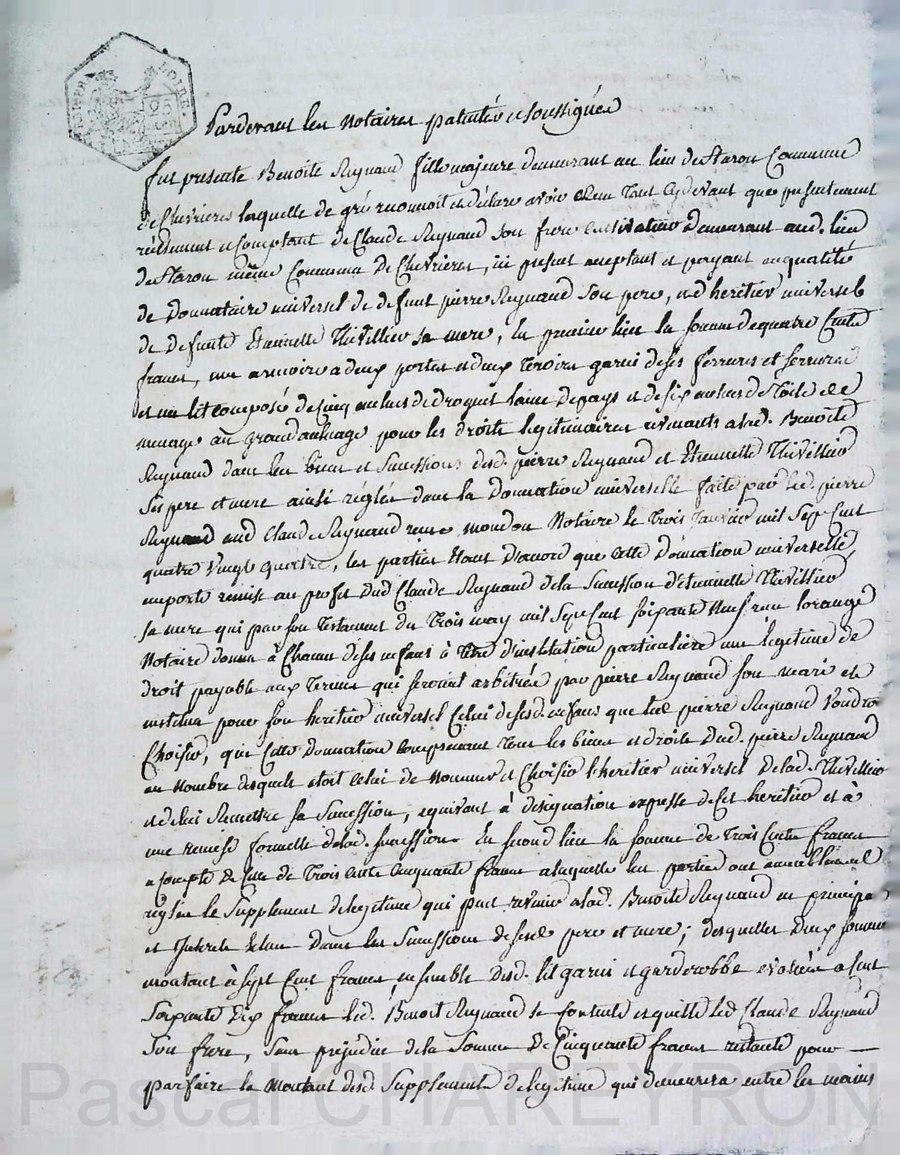 Pardevant les Notaires patentés soussignés
fut presente Benoîte Reynaud fille majeure demeurant au lieu de Commune
de Chevrieres laquelle de gré reconnoit et déclare avoir tant cydevant que presentement
réellement et comptant de Claude Reynaud son frere cultivateur demeurant aud. lieu
de même Commune de Chevrieres, ici present acceptant et payant en qualité
de Donnataire universel de defunt pierre Reynaud son pere, et d'heritier universel
de defunte Etiennette Thivillier sa mere, en premier lieu la somme de quatre Cents
francs, une armoire a deux portes et deux Tiroirs garni de ses ferrures et serrures
et un lit composé de Cinq aulnes de droguet laine de pays et de six aulnes de Toile de
menage au grand aulnage pour les droits legitimaires revenants alad. Benoîte
Reynaud dans les biens et Successions desd. pierre Reynaud et Etiennette Thivillier
ses pere et mere ainsi réglés dans la Donnation universelle faite par led. pierre
Reynaud aud Claude Reynaud reçue mondon Notaire le Trois Janvier mil Sept Cent
quatre Vingt quatre, les parties étant d'accord que cette Donnation universelle
emporte remise au profit dud Claude Reynaud de la Succession d'étiennette Thivillier
sa mere qui par son Testament du Trois may mil Sept Cent soixante Neuf reçu lorange
Notaire donna à Chacun de ses enfans à titre d'institution particuliere une legitime de
droit payable aux Termes qui seroient arbitrés par pierre Reynaud son mari et
institua pour son heritier universel Celui de sesd. enfans que led pierre Reynaud Voudra
Choisir, que Cette Donnation Comprenant Tous les biens et droits dud. pierre Reynaud
au Nombre desquels etoit celui de Nommer et Choisir l'heritier universel de lad. Thivillier
et de lui Remettre sa Succession, equivaut à designation expresse de Cet heritier et à
une remise formelle de lad. succession. En second lieu la somme de Trois Cents francs
acompte de Celle de Trois Cents Cinquante francs a laquelle les parties ont amiablement
réglé le Supplement de legitime qui peut revenir alad. Benoîte Reynaud en principal
et Interets Echus dans les Successions de sesd pere et mere; desquelles Deux sommes
montant à Sept Cent francs, ensemble desd. lit garni et garderobbe evalués a Cent
Soixante Dix francs led. Benoit Reynaud se Contente et quitte led Claude Reynaud
Son frere, Sans prejudice de la Somme de Cinquante francs restante pour
parfaire le Montant dud. Supplement de legitime qui demeurera entre les mains
Pascal CHAREYRON